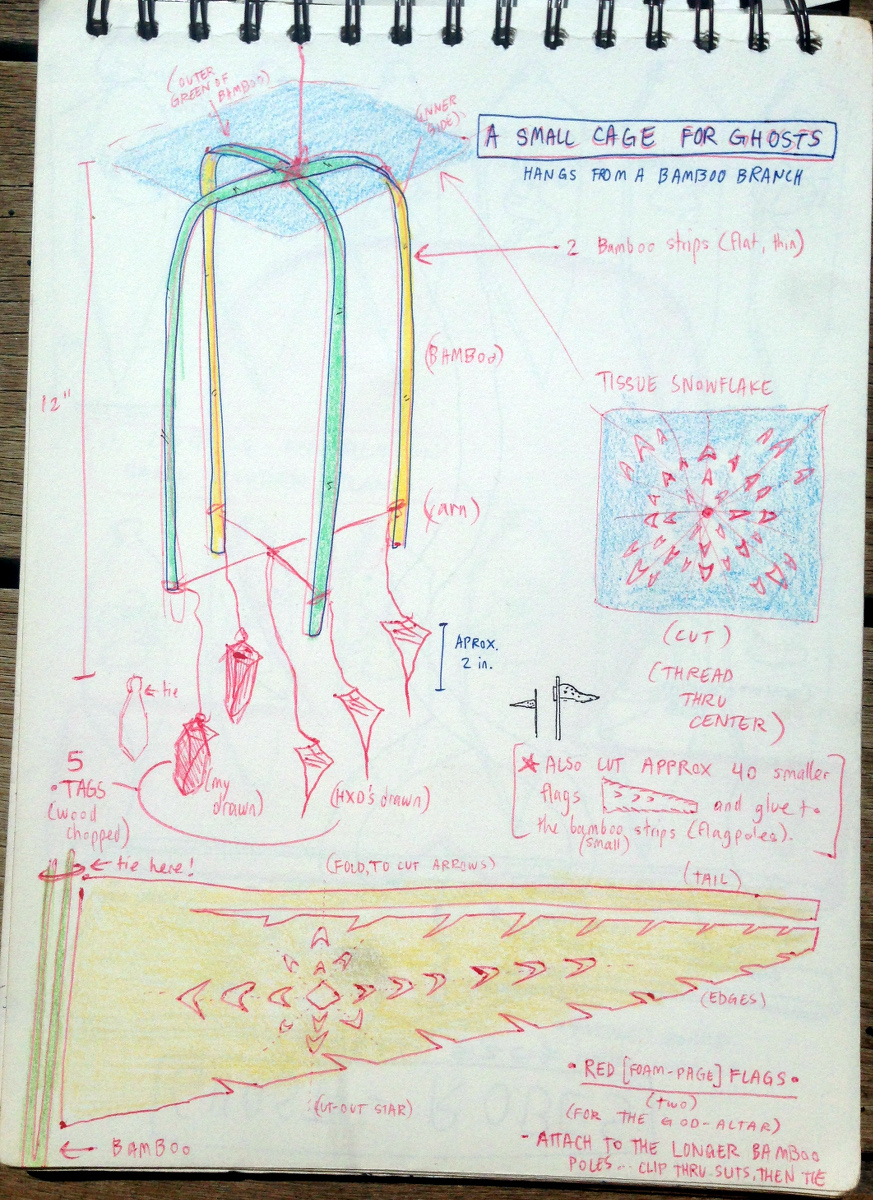 (OUTER
GREEN OF
BAMBOO)
(INNER
SIDE)
A SMALL CAGE FOR GHOSTS
HANGS FROM A BAMBOO BRANCH
2 Bamboo strips (flat, thin)
(BAMBOO)
12"
TISSUE SNOWFLAKE
(Yarn)
(CUT)
(THREAD
THRU
CENTER)
APROX.
2 in.
← tie
5
• TAGS
(wood
chopped)
(my
drawn)
(HXD'S drawn)
★ ALSO CUT APPROX 40 smaller
flags and glue to
the bamboo strips (flagpoles).
(small)
← tie here!
(FOLD, TO CUT ARROWS)
(TAIL)
(EDGES)
(CUT-OUT STAR)
← BAMBOO
• RED [FOAM-PAGE] FLAGS •
(TWO)
(FOR THE GOD-ALTAR)
- ATTACH TO THE LONGER BAMBOO
POLES... CLIP THRU SLITS, THEN TIE